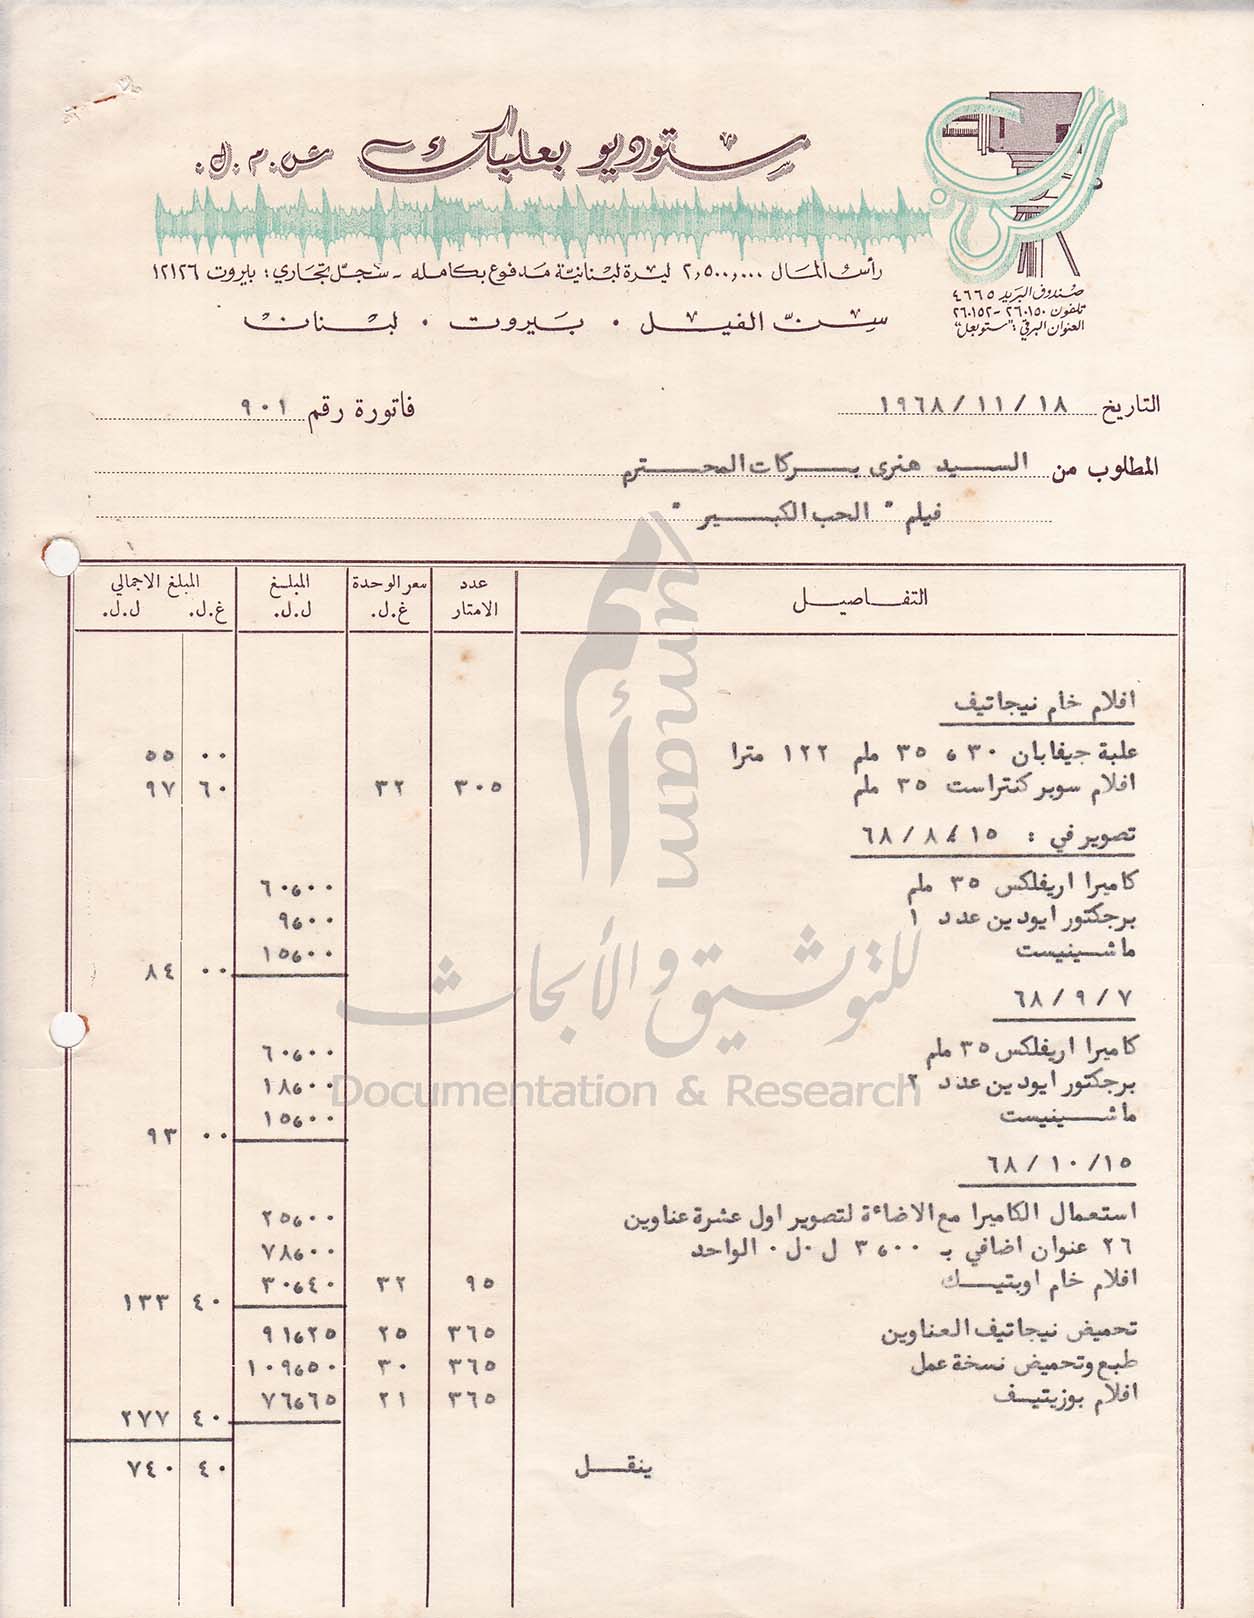 ستوديو بعلبك ش.م.ل.
رأس المال ٢,٥٠٠,٠٠٠ ليرة لبنانية مدفوع بكامله - سجل تجاري: بيروت ١٢١٢٦
سن الفيل . بيروت . لبنان
صندوق البريد ٤٦٦٥
تلفون ٢٦٠١٥٠ - ٢٦٠١٥٢
العنوان البرقي: "ستوبعل"
التاريخ ١٨/ ١١/ ١٩٦٨ فاتورة رقم ٩٠١
المطلوب من السيد هنرى بركات المحترم
فيلم " الحب الكبير "
التفاصيل عدد الامتار سعر الوحدة غ.ل. المبلغ ل.ل. المبلغ الاجمالي غ.ل. ل.ل.
افلام خام نيجاتيف
علبة جيفابان ٣٠ ، ٣٥ ملم ١٢٢ مترا ٠٠ ٥٥
افلام سوبر كنتراست ٣٥ ملم ٣٠٥ ٣٢ ٦٠ ٩٧
تصوير في : ١٥/ ٨/ ٦٨
كاميرا اريفلكس ٣٥ ملم ٦٠،٠٠
برجكتور ايودين عدد ١ ٩،٠٠
ماشينيست ١٥،٠٠
٠٠ ٨٤
٧/ ٩/ ٦٨
كاميرا اريفلكس ٣٥ ملم ٦٠،٠٠
برجكتور ايودين عدد ٢ ١٨،٠٠
ماشينيست ١٥،٠٠
٠٠ ٩٣
١٥/ ١٠/ ٦٨
استعمال الكاميرا مع الاضاءة لتصوير اول عشرة عناوين ٢٥،٠٠
٢٦ عنوان اضافي بـ ٣،٠٠ ل.ل. الواحد ٧٨،٠٠
افلام خام اوبتيك ٩٥ ٣٢ ٣٠،٤٠
٤٠ ١٣٣
تحميض نيجاتيف العناوين ٣٦٥ ٢٥ ٩١،٢٥
طبع وتحميض نسخة عمل ٣٦٥ ٣٠ ١٠٩،٥٠
افلام بوزيتيف ٣٦٥ ٢١ ٧٦،٦٥
٤٠ ٢٧٧
ينقل ٤٠ ٧٤٠
أمم
umam
للتوثيق والأبحاث
Documentation & Research